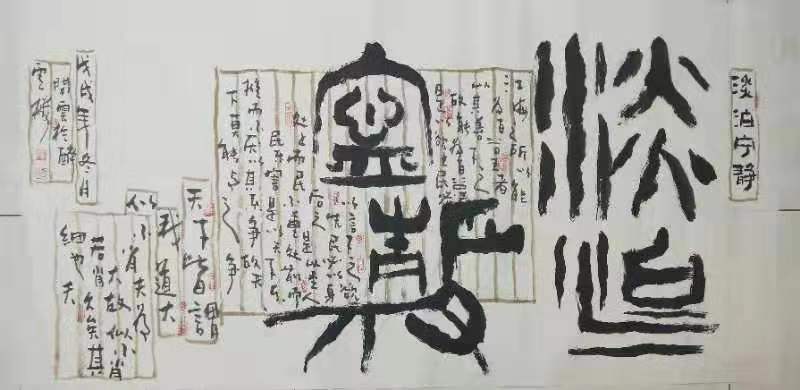 淡泊宁静
淡泊
寧靜
江海之所以能
为百谷王者
以其善下之
故能为百谷王
是以欲上民必
以言下之欲
先民必以身
后之是以圣人
处上而民不重处前而
民不害是以天下乐
推而不厌以其不争故天
下莫能与之争
天下皆謂
我道大
似不肖夫唯
大故似不肖
若肖久矣其
细也夫
戊戌年冬月